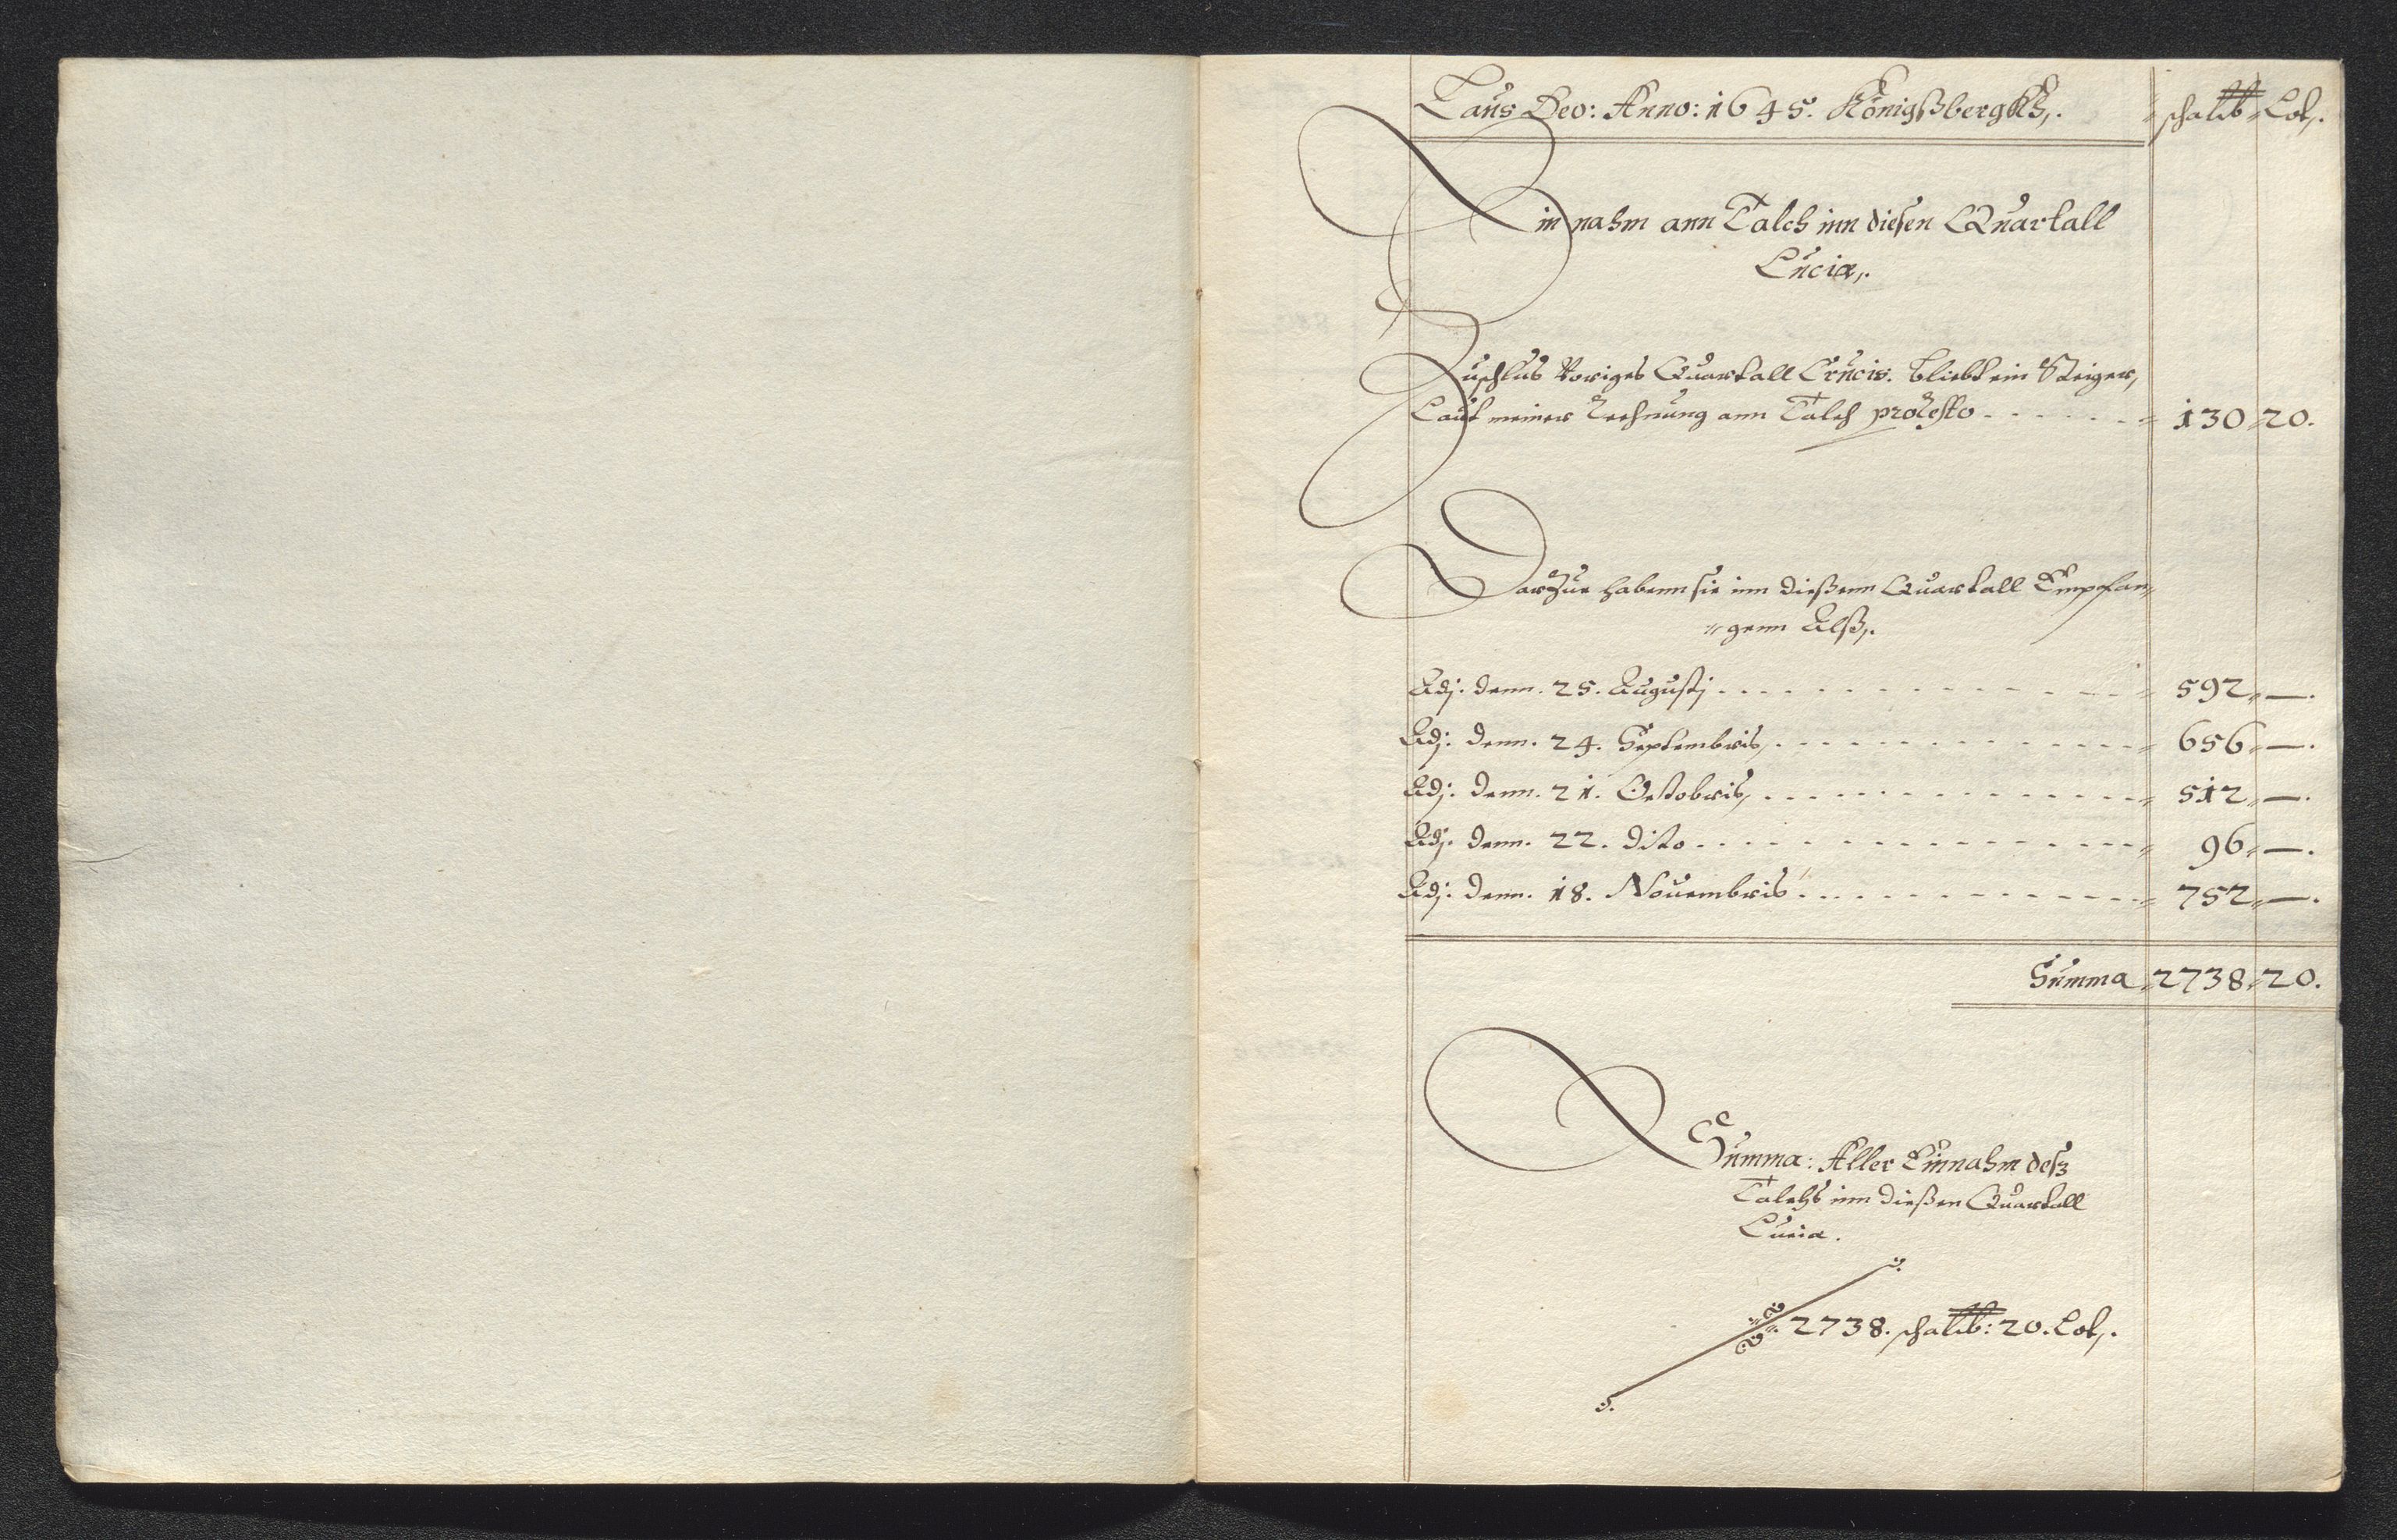 Laus Deo: Anno: 1645. Königßbergkß,. schalib Lot,.
Einnahm ann Talch inn diesen Quartall
Luciæ,.
Zuschlus Voriges Quartall Crucis. bliebt ein Steiger,
Laut meiner Rechnung ann Talch pro Resto - - - - - - 130 20.
Darzue habenn sie inn dießenn Quartall Empfan„
„genn Alß,.
Adj. denn. 25. Augustj - - - - - - 592 —.
Adj. denn. 24. Septembris, - - - - - - 656 —.
Adj. denn. 21. Octobris, - - - - - - 512 —.
Adj. denn. 22. dito - - - - - - 96 —.
Adj. denn. 18. Nouembris - - - - - - 752 —.
Summa 2738 20.
Summa: Aller Einnahm deß
Talchs inn dießen Quartall
Luciæ.
2738. schalib: 20. Lot,.